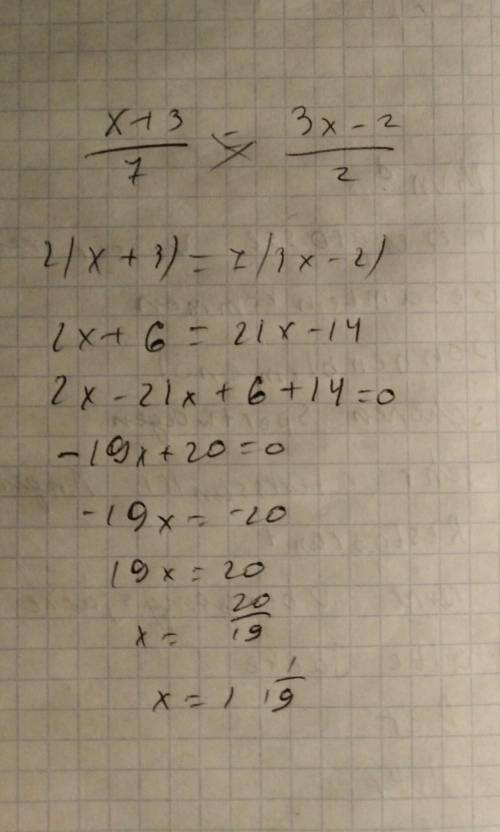 x+3/7 = 3x-2/2
2(x+3)=7(3x-2)
2x+6=21x-14
2x-21x+6+14=0
-19x+20=0
-19x=-20
19x=20
x=20/19
x=1 1/19